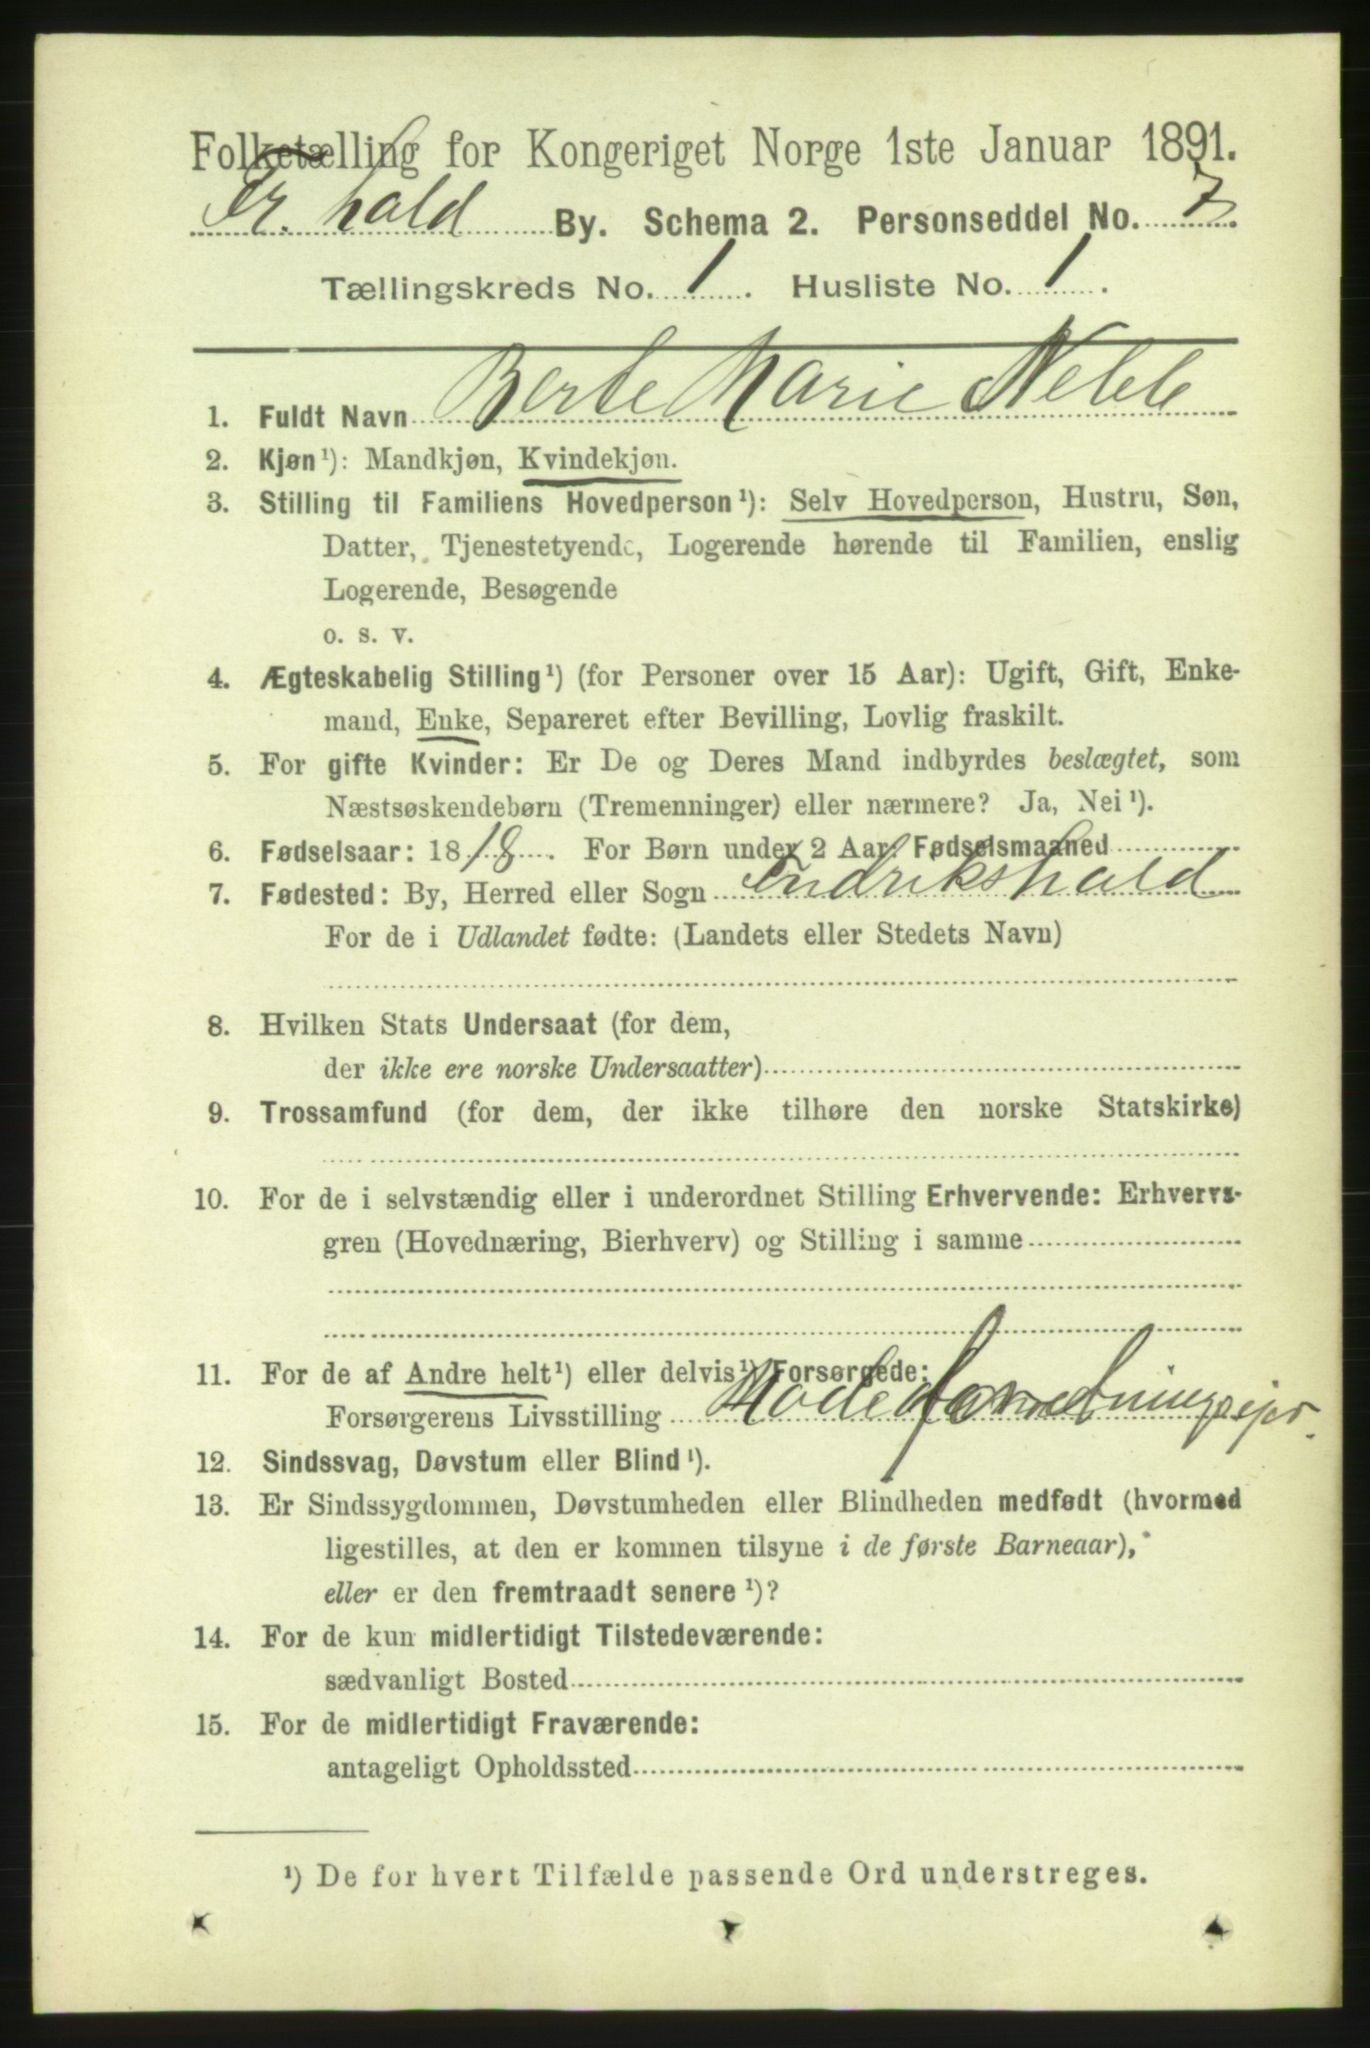 Folketælling for Kongeriget Norge 1ste Januar 1891.
Fr. hald By. Schema 2. Personseddel No. 7.
Tællingskreds No. 1. Husliste No. 1.
1. Fuldt Navn Berte Marie
2. Kjøn¹): Mandkjøn, Kvindekjøn.
3. Stilling til Familiens Hovedperson¹): Selv Hovedperson, Hustru, Søn,
Datter, Tjenestetyende, Logerende hørende til Familien, enslig
Logerende, Besøgende
o. s. v.
4. Ægteskabelig Stilling¹) (for Personer over 15 Aar): Ugift, Gift, Enke-
mand, Enke, Separeret efter Bevilling, Lovlig fraskilt.
5. For gifte Kvinder: Er De og Deres Mand indbyrdes beslægtet, som
Næstsøskendebørn (Tremenninger) eller nærmere? Ja, Nei¹).
6. Fødselsaar: 1818. For Børn under 2 Aar: Fødselsmaaned
7. Fødested: By, Herred eller Sogn Fredrikshald
For de i Udlandet fødte: (Landets eller Stedets Navn)
8. Hvilken Stats Undersaat (for dem,
der ikke ere norske Undersaatter)
9. Trossamfund (for dem, der ikke tilhøre den norske Statskirke)
10. For de i selvstændig eller i underordnet Stilling Erhvervende: Erhvervs-
gren (Hovednæring, Bierhverv) og Stilling i samme
11. For de af Andre helt¹) eller delvis¹) Forsørgede:
Forsørgerens Livsstilling Modeforretningsejer.
12. Sindssvag, Døvstum eller Blind¹).
13. Er Sindssygdommen, Døvstumheden eller Blindheden medfødt (hvormed
ligestilles, at den er kommen tilsyne i de første Barneaar),
eller er den fremtraadt senere¹)?
14. For de kun midlertidigt Tilstedeværende:
sædvanligt Bosted
15. For de midlertidigt Fraværende:
antageligt Opholdssted
¹) De for hvert Tilfælde passende Ord understreges.